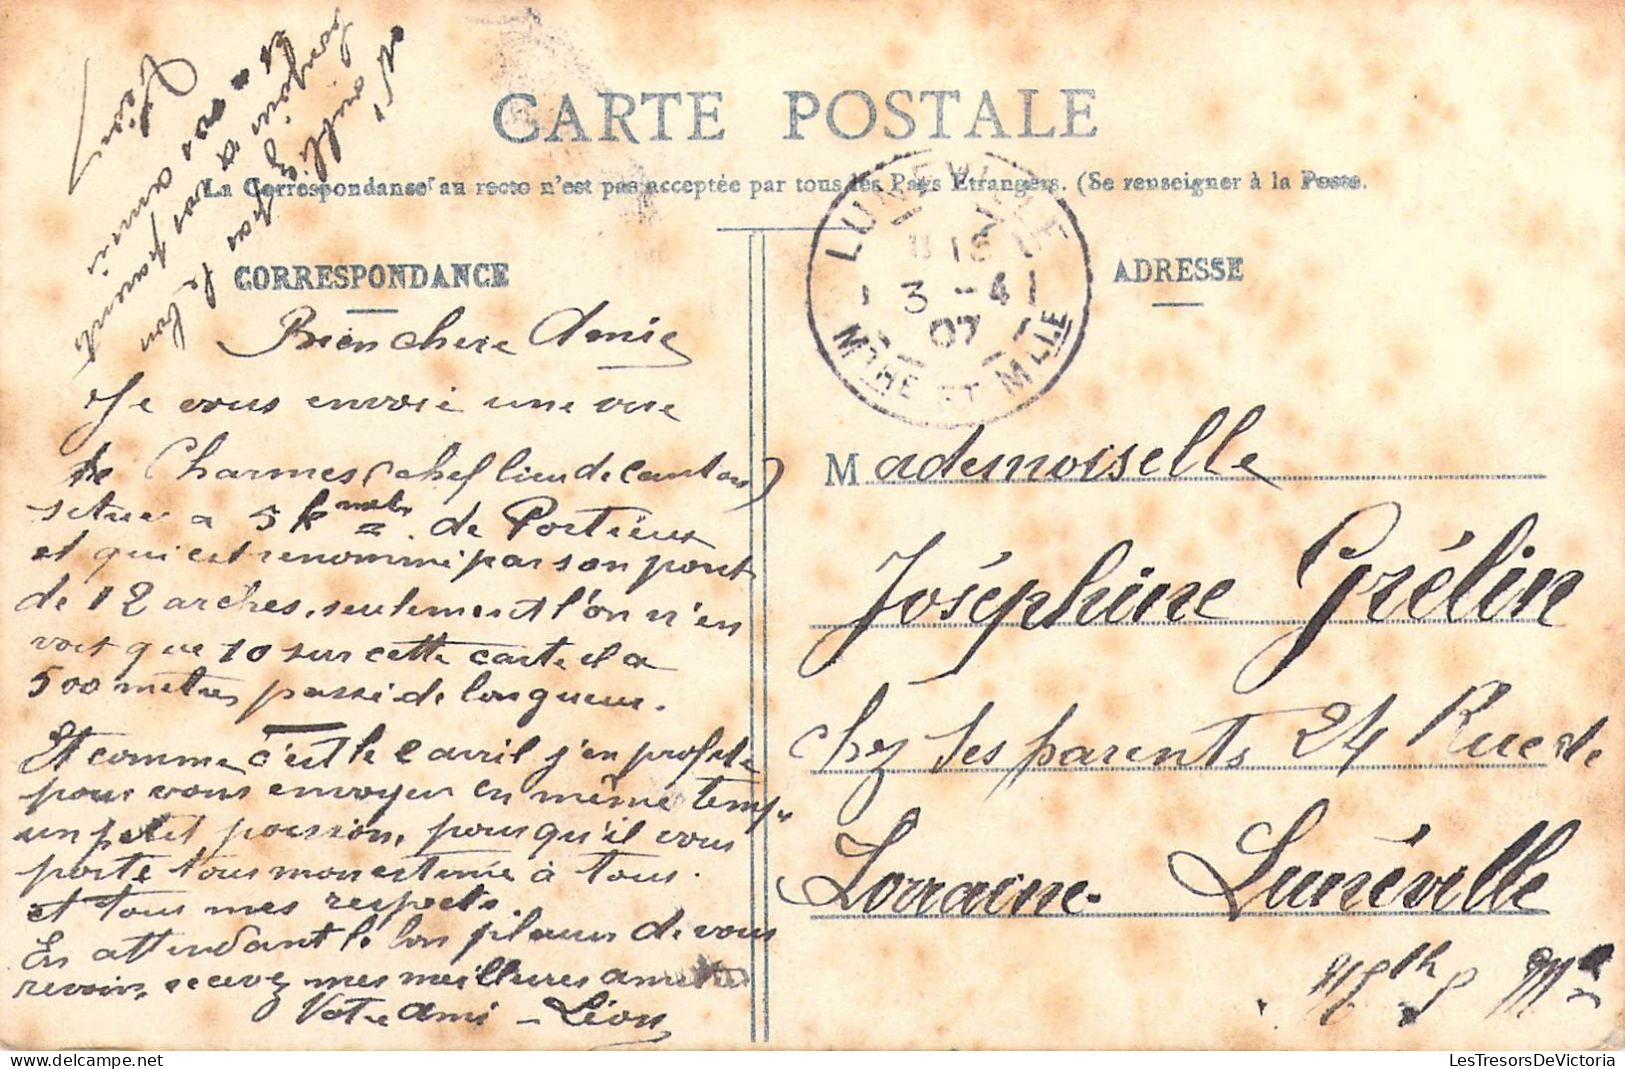 CARTE POSTALE
La Correspondance au recto n'est pas acceptée par tous les Pays Etrangers. (Se renseigner à la Poste.
CORRESPONDANCE
Bien chère Amie
Je vous envoie une vue
de Charmes (chef lieu de canton)
situé a 5 k mètr. de Portieux
et qui est renommé par son pont
de 12 arches, seulement l'on n'en
voit que 10 sur cette carte il a
500 mètres passé de longueur.
Et comme c'est le 2 avril j'en profite
pour vous envoyer en même temps
un petit poisson, pour qu'il vous
porte tous mon estime à tous.
et tous mes respects.
En attendant le bon plaisir de vous
revoir, recevez mes meilleures amitiés
Votre Ami - Léon
N'oubliez pas le bon
bonjour a vos parents
et a vos amis
Léon
LUNEVILLE
3 - 4
07
MTHE ET MLLE
ADRESSE
Mademoiselle
Joséphine Grélin
chez ses parents 24 Rue de
Lorraine. Lunéville
Mthe & Mle
LesTresorsDeVictoria